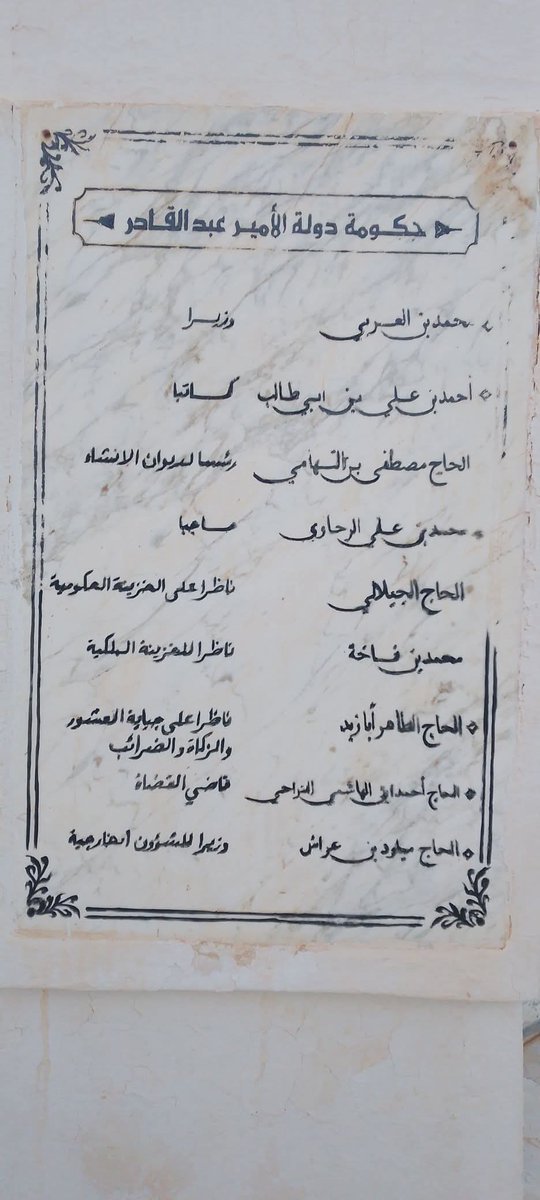 حكومة دولة الأمير عبد القادر
محمد بن العربي وزيرا
أحمد بن علي بن ابي طالب كاتبا
الحاج مصطفى بن التهامي رئيسا لديوان الانشاء
محمد بن علي الرحاوي حاجبا
الحاج الجيلالي ناظرا على الخزينة الحكومية
محمد بن فاخة ناظرا للخزينة الملكية
الحاج الطاهر أبا زيد ناظرا على جباية العشور
والزكاة والضرائب
الحاج أحمد ابن الهاشمي المراحي قاضي القضاة
الحاج ميلود بن عراش وزيرا للشؤون الخارجية